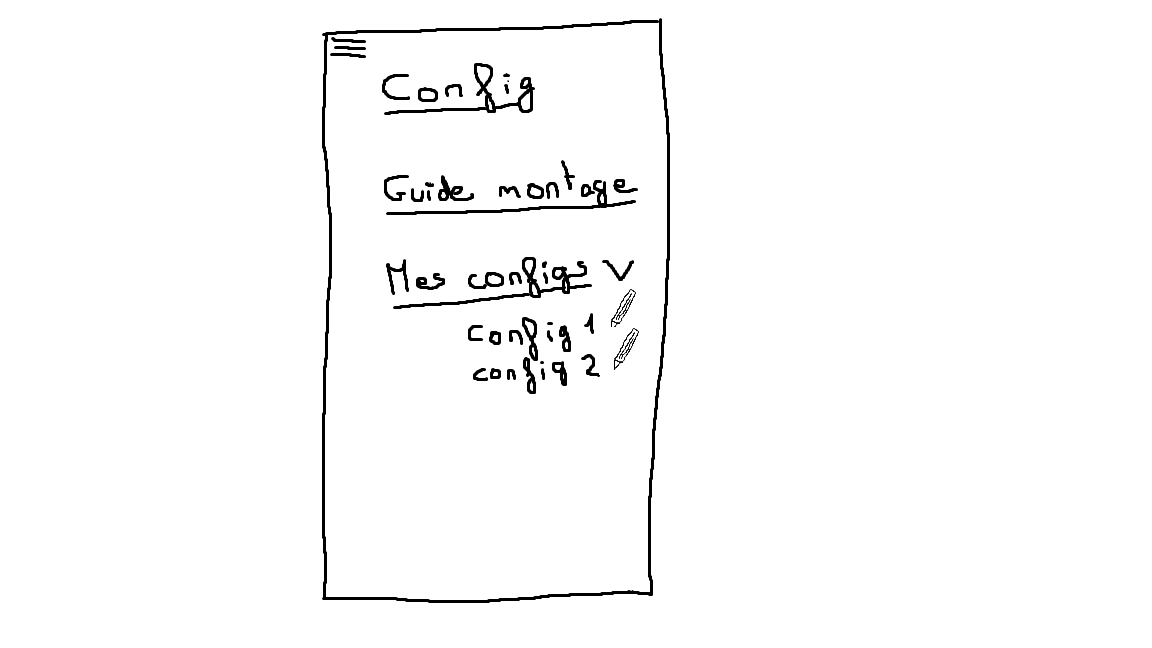 Config
Guide montage
Mes configs V
config 1
config 2